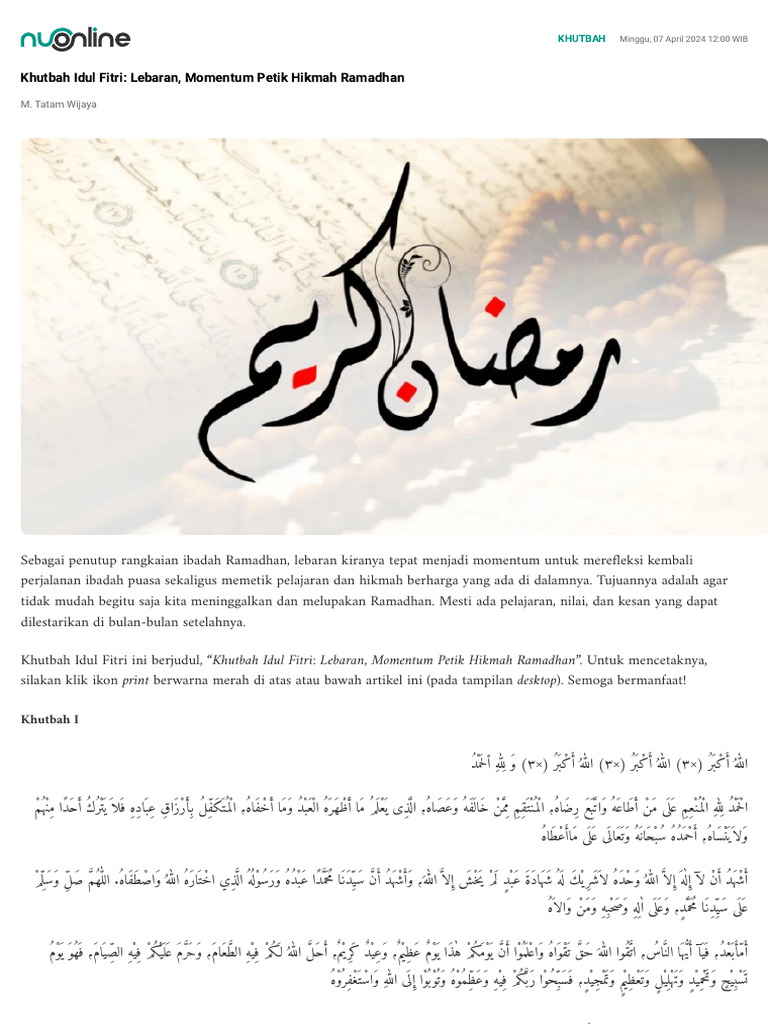 nuonline
KHUTBAH Minggu, 07 April 2024 12:00 WIB
Khutbah Idul Fitri: Lebaran, Momentum Petik Hikmah Ramadhan
M. Tatam Wijaya
رمضان كريم
Sebagai penutup rangkaian ibadah Ramadhan, lebaran kiranya tepat menjadi momentum untuk merefleksi kembali
perjalanan ibadah puasa sekaligus memetik pelajaran dan hikmah berharga yang ada di dalamnya. Tujuannya adalah agar
tidak mudah begitu saja kita meninggalkan dan melupakan Ramadhan. Mesti ada pelajaran, nilai, dan kesan yang dapat
dilestarikan di bulan-bulan setelahnya.
Khutbah Idul Fitri ini berjudul, “Khutbah Idul Fitri: Lebaran, Momentum Petik Hikmah Ramadhan”. Untuk mencetaknya,
silakan klik ikon print berwarna merah di atas atau bawah artikel ini (pada tampilan desktop). Semoga bermanfaat!
Khutbah I
اللهُ أَكْبَرُ (×٣) اللهُ أَكْبَرُ (×٣) اللهُ أَكْبَرُ (×٣) وَ لِلّٰهِ اْلحَمْدُ
الْحَمْدُ لِلّٰهِ الْمُنْعِمِ عَلَى مَنْ أَطَاعَهُ وَاتَّبَعَ رِضَاهُ, الْمُنْتَقِمِ مِمَّنْ خَالَفَهُ وَعَصَاهُ, الَّذِى يَعْلَمُ مَا أَظْهَرَهُ الْعَبْدُ وَمَا أَخْفَاهُ, الْمُتَكَفِّلُ بِأَرْزَاقِ عِبَادِهِ فَلاَ يَتْرُكُ أَحَدًا مِنْهُمْ
وَلاَيَنْسَاهُ, أَحْمَدُهُ سُبْحَانَهُ وَتَعَالَى عَلَى مَاأَعْطَاهُ
أَشْهَدُ أَنْ لآ إِلهَ إِلاَّ اللهُ وَحْدَهُ لاَشَرِيْكَ لَهُ شَهَادَةَ عَبْدٍ لَمْ يَخْشَ إِلاَّ اللهَ, وَأَشْهَدُ أَنَّ سَيِّدَنَا مُحَمَّدًا عَبْدُهُ وَرَسُوْلُهُ الَّذِي اخْتَارَهُ اللهُ وَاصْطَفَاهُ. اللهُمَّ صَلِّ وَسَلِّمْ
عَلَى سَيِّدِنَا مُحَمَّدٍ, وَعَلَى اٰلِهِ وَصَحْبِهِ وَمَنْ وَالاَهُ
أَمَّابَعْدُ, فَيَآ أَيُّهَا النَّاسُ, اتَّقُوا اللهَ حَقَّ تَقْوَاهُ وَاعْلَمُوْا أَنَّ يَوْمَكُمْ هٰذَا يَوْمٌ عَظِيْمٌ, وَعِيْدٌ كَرِيْمٌ, أَحَلَّ اللهُ لَكُمْ فِيْهِ الطَّعَامَ, وَحَرَّمَ عَلَيْكُمْ فِيْهِ الصِّيَامَ, فَهُوَ يَوْمُ
تَسْبِيْحٍ وَتَحْمِيْدٍ وَتَهْلِيْلٍ وَتَعْظِيْمٍ وَتَمْجِيْدٍ, فَسَبِّحُوْا رَبَّكُمْ فِيْهِ وَعَظِّمُوْهُ وَتُوْبُوْا إِلَى اللهِ وَاسْتَغْفِرُوْهُ